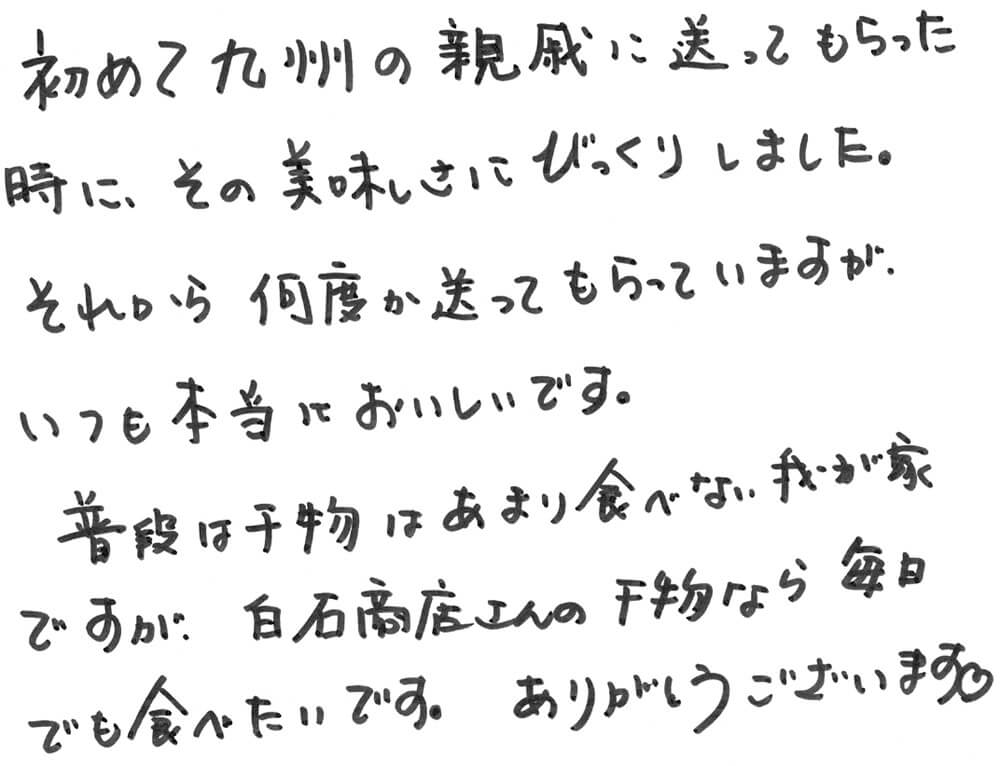 初めて九州の親戚に送ってもらった
時に、その美味しさにびっくりしました。
それから何度か送ってもらっていますが、
いつも本当においしいです。
普段は干物はあまり食べない我が家
ですが、白石商店さんの干物なら毎日
でも食べたいです。ありがとうございます♡